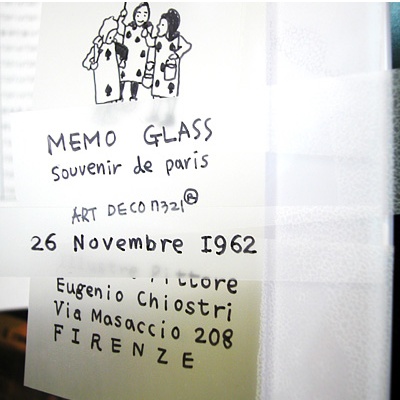 MEMO GLASS
souvenir de paris
ART DECO n321®
26 Novembre 1962
Pittore
Eugenio Chiostri
Via Masaccio 208
FIRENZE